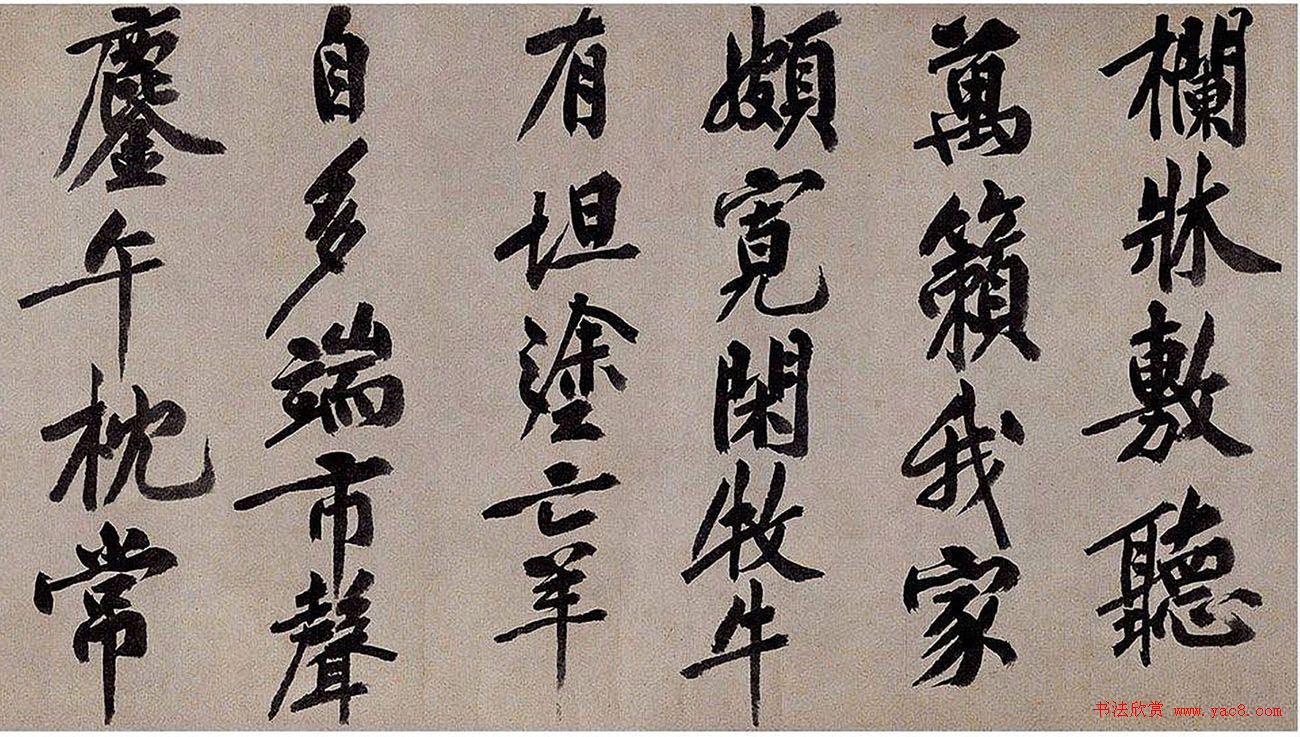 欄牀敷聽
萬籟我家
頗寬閑牧牛
有坦塗亡羊
自多端市聲
鏖午枕常
书法欣赏 www.yac8.com